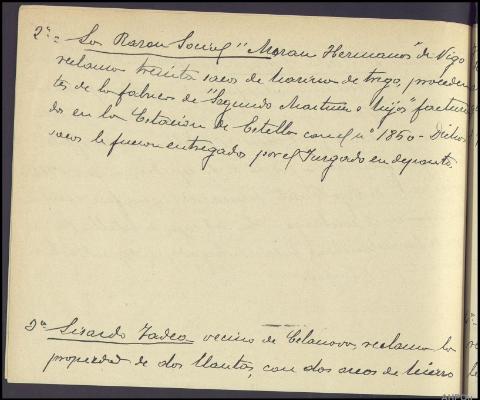 2ª= La Razon Social "Moran Hermanos" de Vigo
reclama treinta sacos de harina de trigo, proceden
tes de la fabrica de "Segundo Martin e hijos" factura
dos en la Estación de con el nº 1850 - Dichos
sacos le fueron entregados por el Juzgado en deposito.
3ª Sisardo Tadeo vecino de Celanova, reclama la
propiedad de dos llantas, con dos aros de hierro